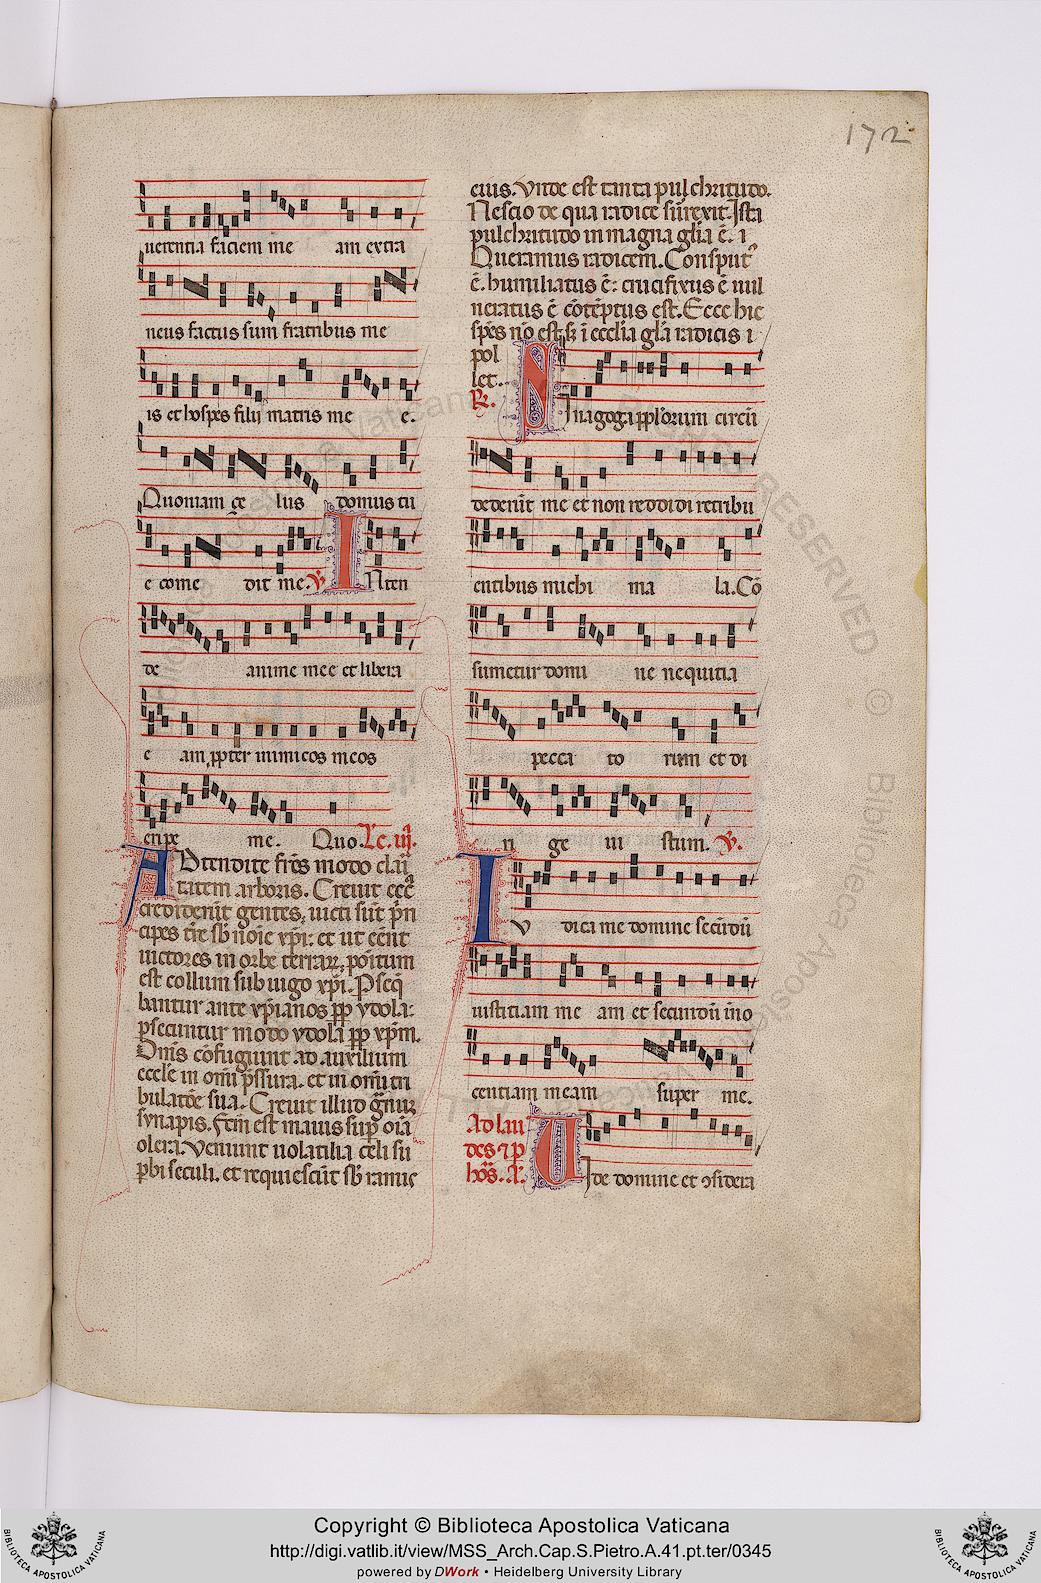 172
uerentia faciem me am extra
neus factus sum fratribus me
is et hospes filijs matris me e.
Quoniam çe lus domus tu
e come dit me. V. INten
de anime mee et libera
e am ꝓpter inimicos meos
eripe me. Quo. Lc. iij.
ADtendite fr̄es modo clari
tatem arboris. Creuit ecc̄
crediderūt gentes, uicti sūt p̄n
cipes t̄re sb̄ noīe xp̄i: et ut eēnt
uictores in orbe terraꝝ, positum
est collum sub iugo xp̄i. Pseq̄
bantur ante xp̄ianos ꝓp ydola:
ꝑsecuntur modo ydola ꝓp xp̄m.
Om̄s cōfugiunt ad auxilium
eccl̄e in om̄i p̄ssura. et in om̄i tri
bulatōe sua. Creuit illud g̃nuꝫ
synapis. fc̄m est maius suꝑ oīa
olera. Veniunt uolatilia celi su
ꝑbi seculi. et requiescūt sb̄ ramis
eius. Vnde est tanta pulchritudo.
Nescio de qua radice surrexit. Ista
pulchritudo in magna gl̄ia ē. i
Queramus radicem. Consput᾽
ē. humiliatus ē: crucifixus ē uul
neratus ē cōtēptus est. Ecce hic
spēs nō est, sꝫ ī eccl̄ia gl̄ia radicis i
pol
let.
R. SInagoga ꝓpl'orum circū
dederūt me et non reddidi retribu
entibus michi ma la. Cō
sumetur domi ne nequitia
pecca to rum et di
ri ge iu stum. V.
IV dica me domine secūdū
iustitiam me am et secundū īno
centiam meam super me.
Ad lau
des ⁊ ꝑ
hōs. a. UIde domine et ꝯsidera
Copyright © Biblioteca Apostolica Vaticana
http://digi.vatlib.it/view/MSS_Arch.Cap.S.Pietro.A.41.pt.ter/0345
powered by DWork • Heidelberg University Library
BIBLIOTECA APOSTOLICA VATICANA
BIBLIOTECA APOSTOLICA VATICANA